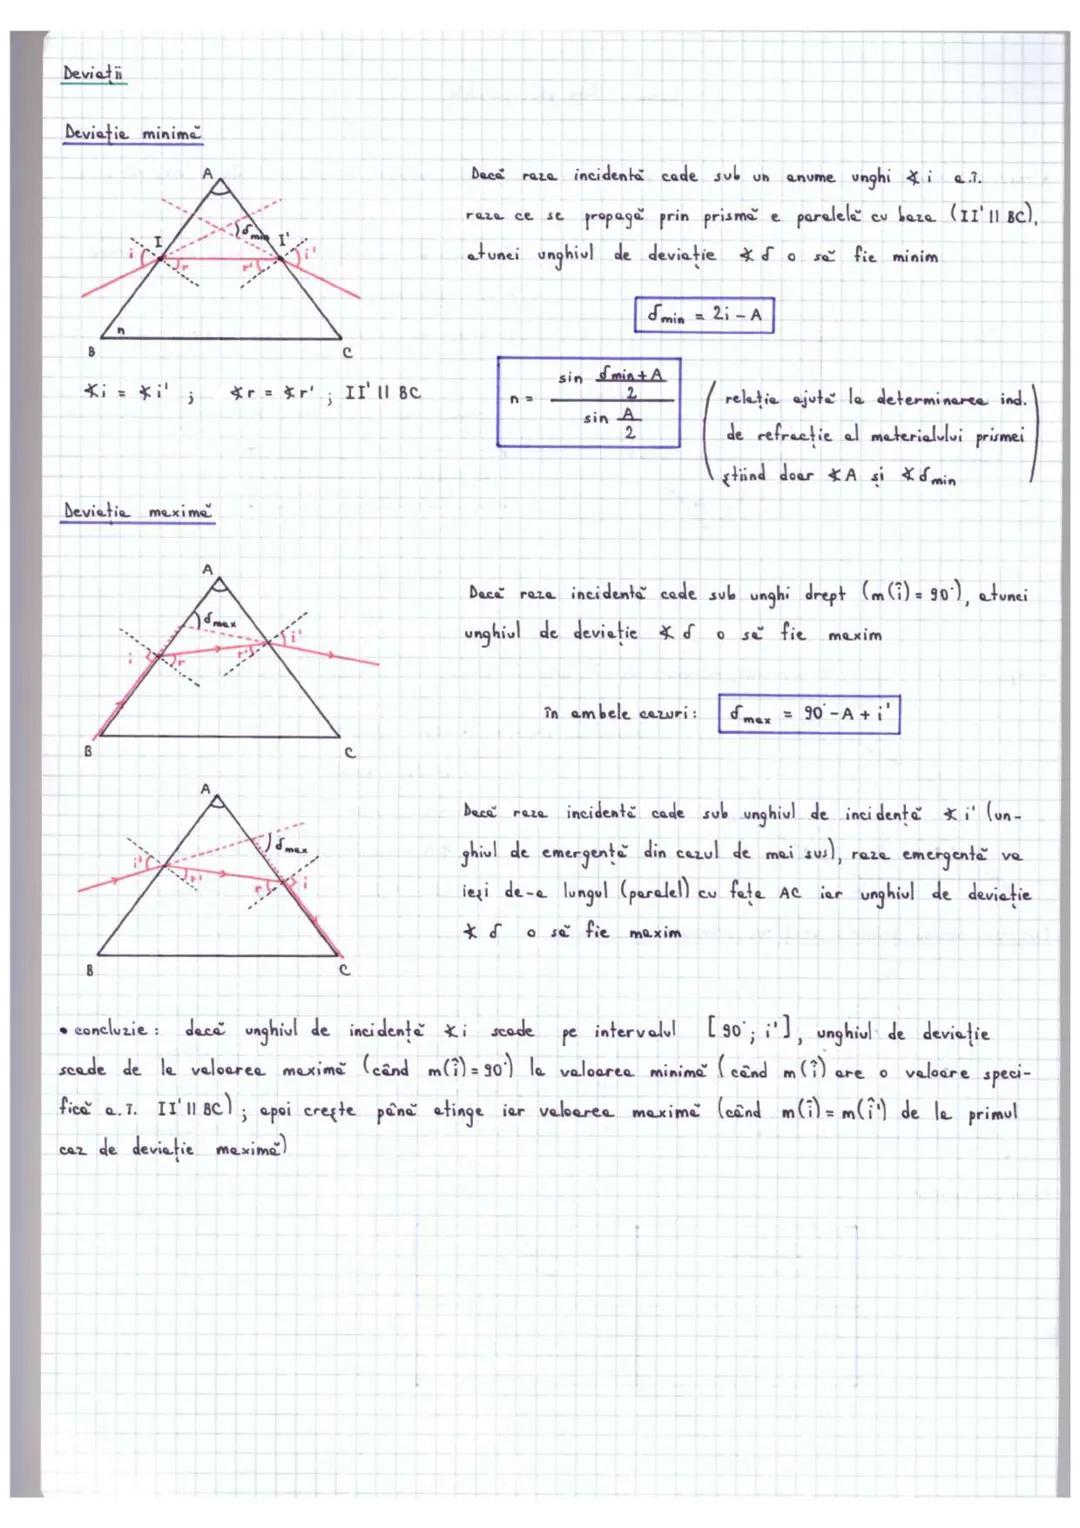 Deviații
Deviație minimă
A
δmin
I I'
i r r' i'
n
B C
∢i = ∢i' ; ∢r = ∢r' ; II' || BC
Dacă raza incidentă cade sub un anume unghi ∢i a.î.
raza ce se propagă prin prismă e paralelă cu baza (II' || BC),
atunci unghiul de deviație ∢δ o să fie minim
δmin = 2i - A
n = sin (δmin + A)/2 / sin A/2
(relația ajută la determinarea ind.
de refracție al materialului prismei
știind doar ∢A și ∢δmin)
Deviația maximă
A
δmax
i r r' i'
B C
Dacă raza incidentă cade sub unghi drept (m(î) = 90°), atunci
unghiul de deviație ∢δ o să fie maxim
în ambele cazuri: δmax = 90° - A + i'
A
δmax
i' r' r i
B C
Dacă raza incidentă cade sub unghiul de incidență ∢i' (un-
ghiul de emergență din cazul de mai sus), raza emergentă va
ieși de-a lungul (paralel) cu fața AC iar unghiul de deviație
∢δ o să fie maxim
• concluzie: dacă unghiul de incidență ∢i scade pe intervalul [90°; i'], unghiul de deviație
scade de la valoarea maximă (când m(î) = 90°) la valoarea minimă (când m(î) are o valoare speci-
fică a.î. II' || BC); apoi crește până atinge iar valoarea maximă (când m(î) = m(î') de la primul
caz de deviație maximă)